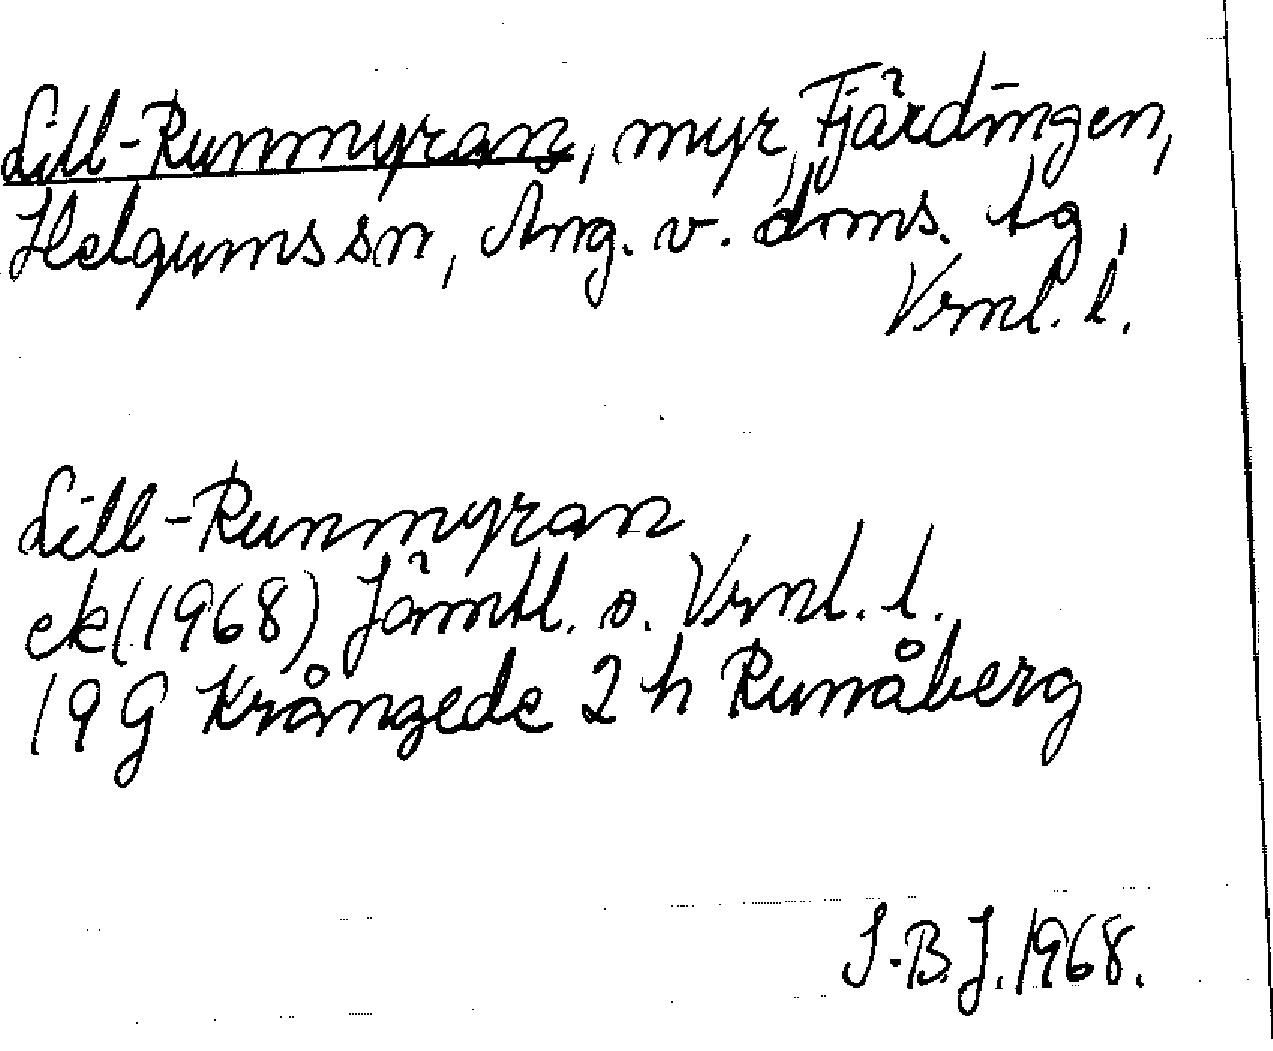 Lill-Runmyran, myr, Fjärdingen,
Helgums sn, Ång. v. dms. tg,
Vrnl. l.
Lill-Runmyran
ek (1968) Jämtl. o. Vrnl. l.
19 G Krångede 2 h Runåberg
S-B.J. 1968.